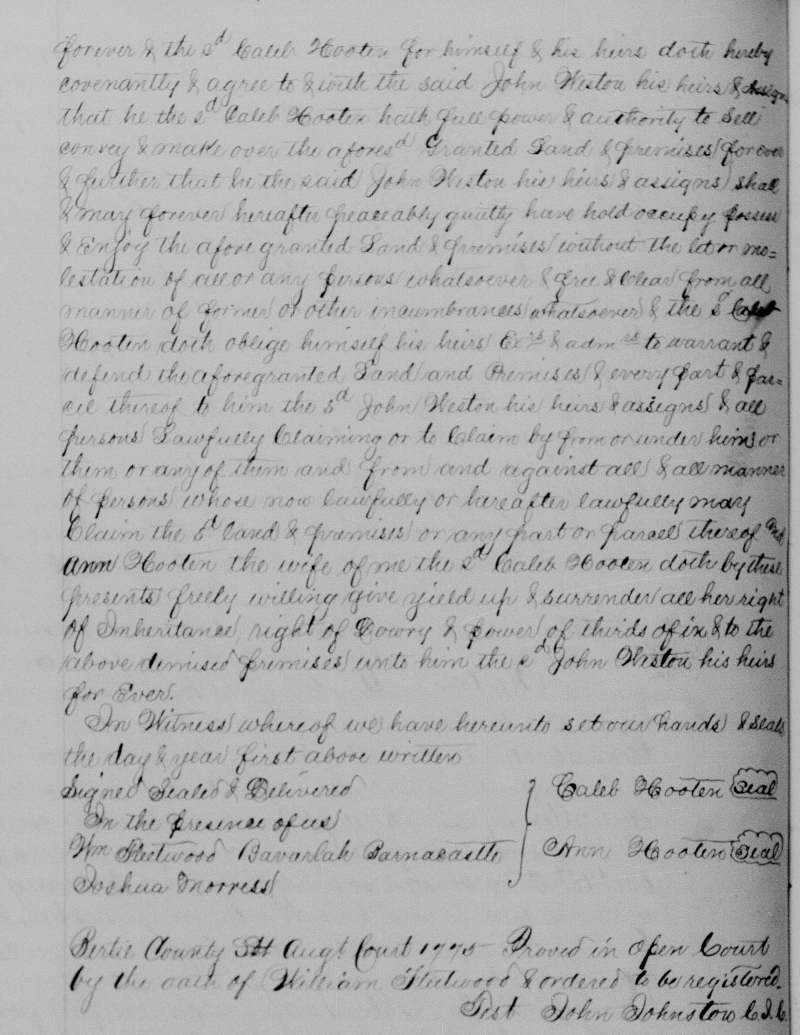 forever & the sd Caleb Hooten for himself & his heirs doth hereby
covenantly & agree to & with the said John Weston his heirs & assigns
that he the sd Caleb Hooten hath full power & authority to Sell
convey & make over the aforesd Granted Land & premises forever
& further that he the said John Weston his heirs & assigns shall
& may forever hereafter peaceably quietly have hold occupy possess
& Enjoy the afore granted Land & premises without the let or mo=
lestation of all or any persons whatsoever & free & Clear from all
manner of former or other incumbrances whatsoever & the sd Caleb
Hooten doth oblige himself his heirs Exrs & admrs to warrant &
defend the aforegranted Land and Premises & every part & par=
cil thereof to him the sd John Weston his heirs & assigns & all
persons Lawfully Claiming or to Claim by from or under him or
them or any of them and from and against all & all manner
of persons whose now lawfully or hereafter lawfully may
Claim the sd land & premises or any part or parcel thereof And
Ann Hooten the wife of me the sd Caleb Hooten doth by these
presents freely willing give yield up & surrender all her right
of Inheritance right of Dowry & power of thirds of in & to the
above demised premises unto him the sd John Weston his heirs
for Ever.
In Witness whereof we have hereunto set our hands & Seals
the day & year first above written
Signed Sealed & Delivered } Caleb Hooten Seal
In the presence of us
Wm Fleetwood Bavarlah Barnacastle Ann Hooten Seal
Joshua Morress
Bertie County Stt Augt Court 1775 Proved in Open Court
by the oath of William Fleetwood & ordered to be registered.
Test John Johnston C.I.C.